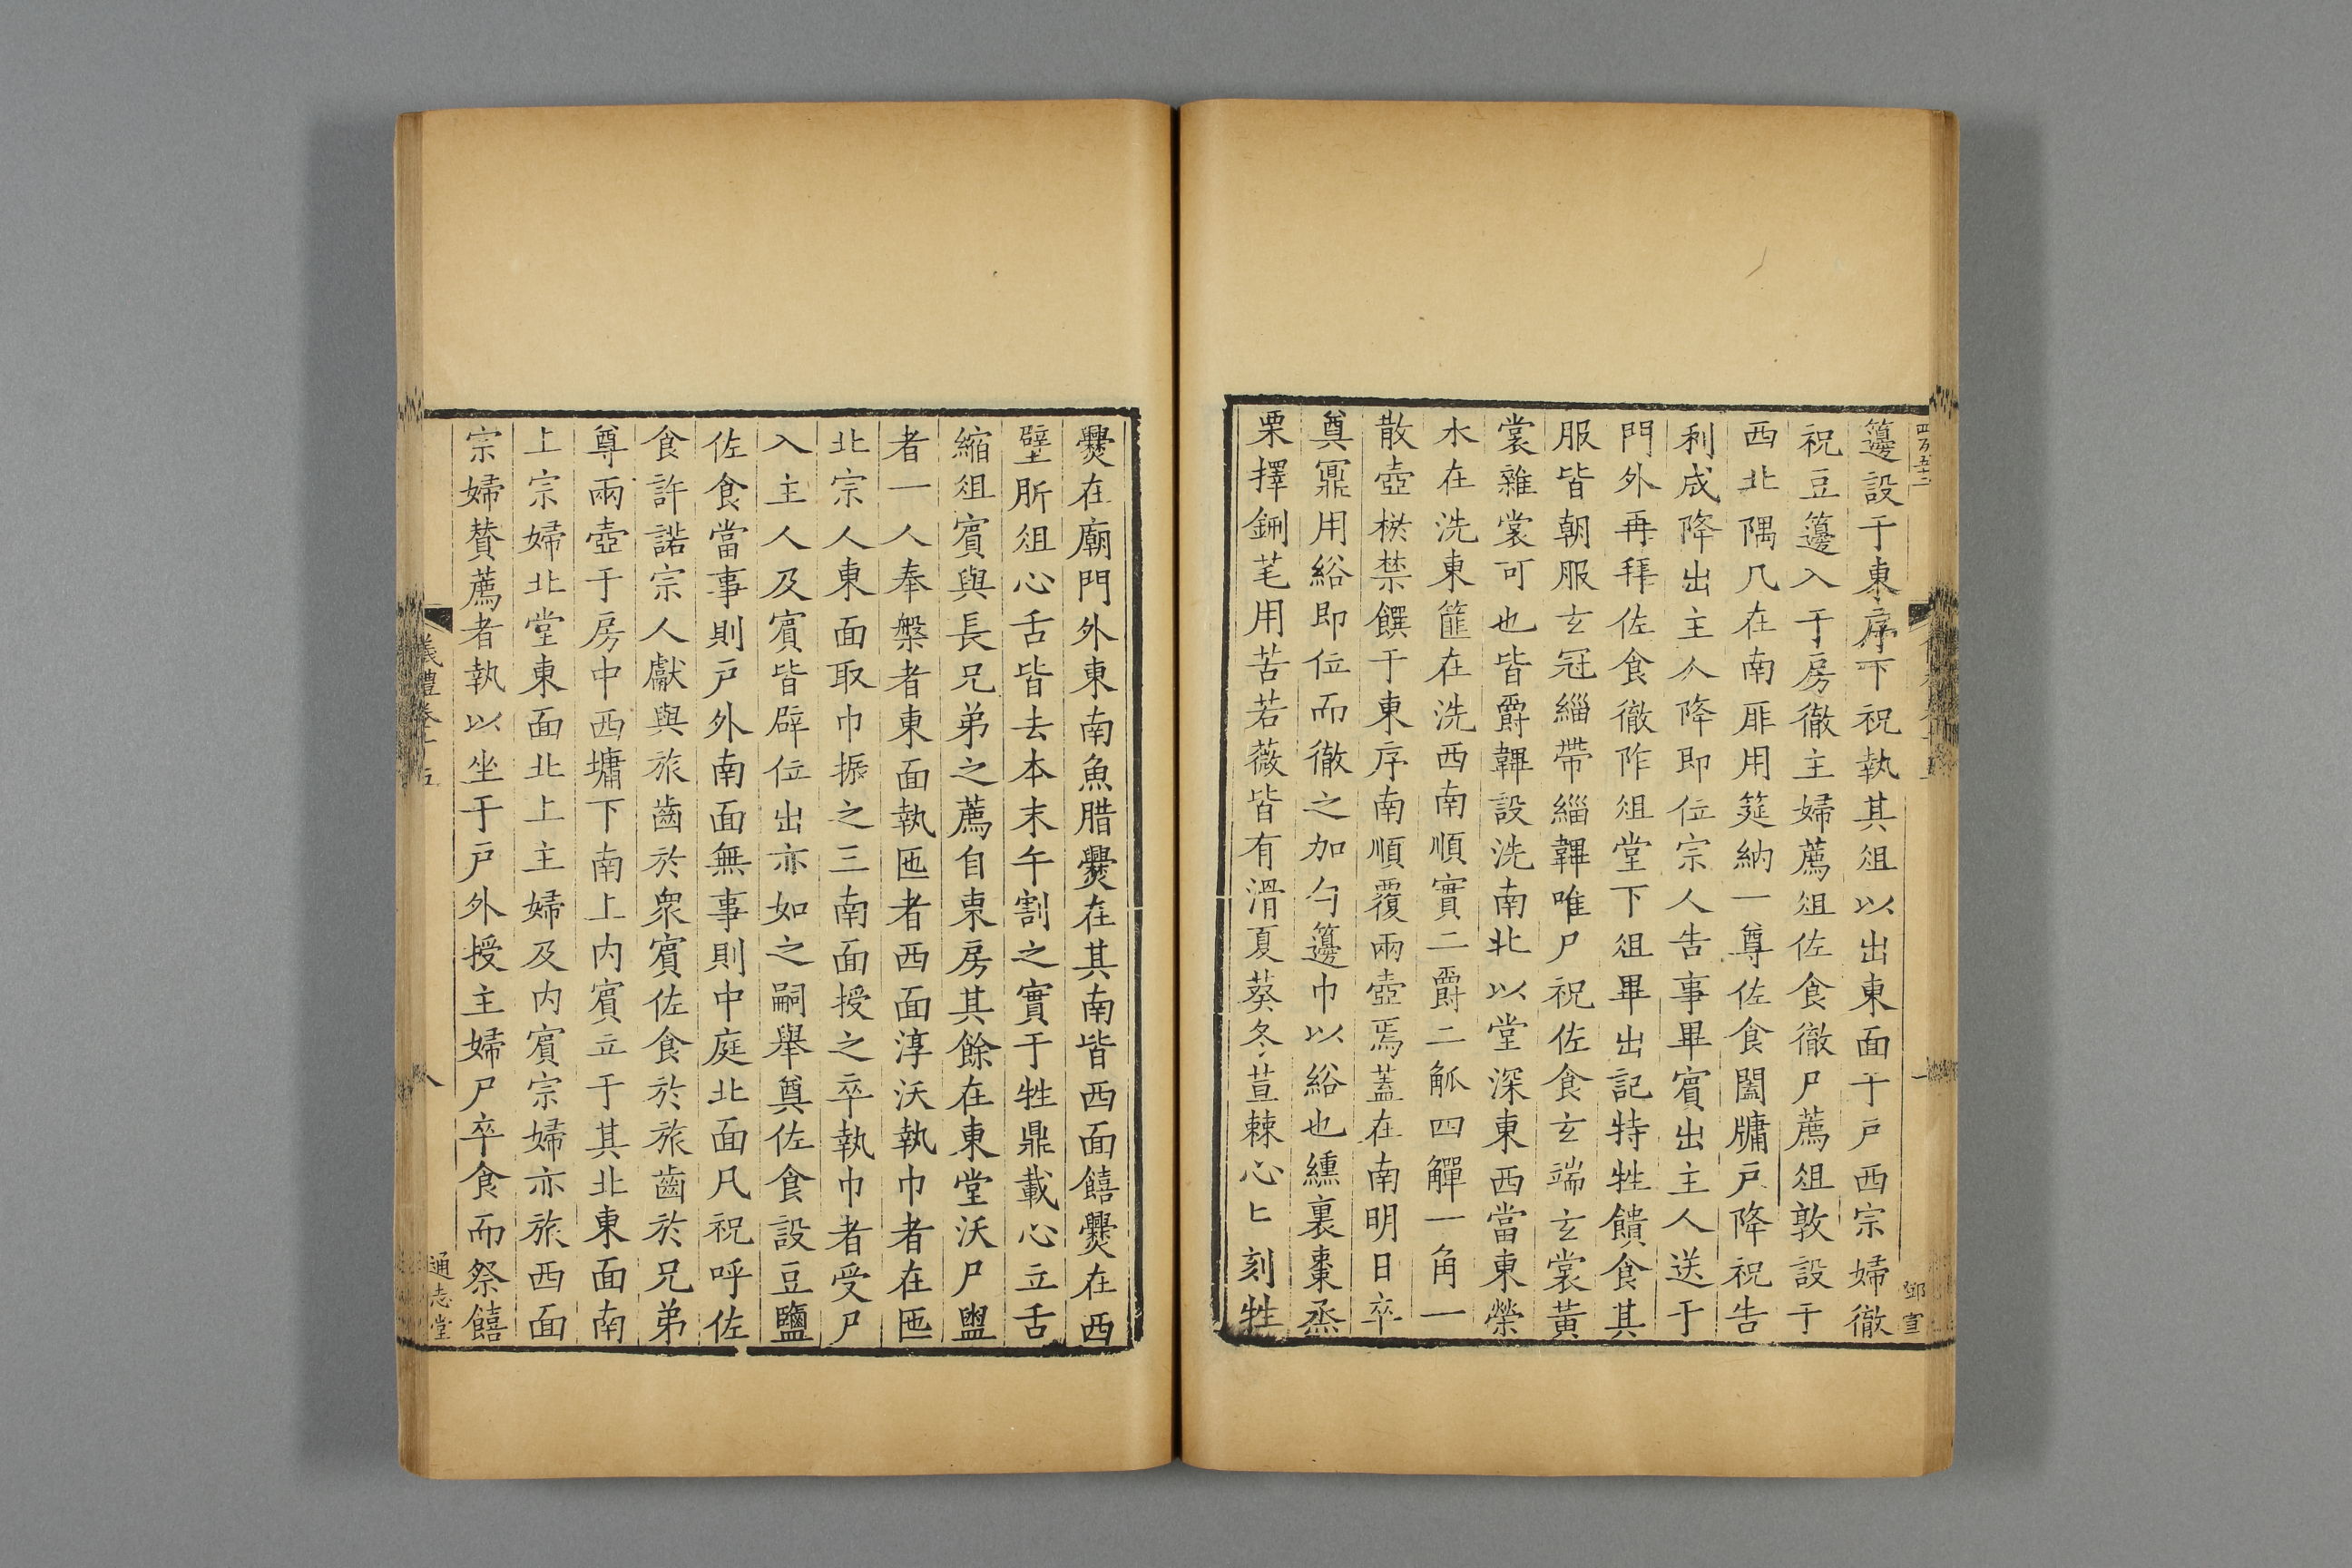 籩設于東序下祝執其俎以出東面于戶西宗婦徹
祝豆籩入于房徹主婦薦俎佐食徹尸薦俎敦設于
西北隅几在南厞用筵納一尊佐食闔牖戶降祝告
利成降出主人降即位宗人告事畢賓出主人送于
門外再拜佐食徹阼俎堂下俎畢出記特牲饋食其
服皆朝服玄冠緇帶緇韠唯尸祝佐食玄端玄裳黃
裳雜裳可也皆爵韠設洗南北以堂深東西當東榮
水在洗東篚在洗西南順實二爵二觚四觶一角一
散壺棜禁饌于東序南順覆兩壺焉蓋在南明日卒
奠冪用綌即位而徹之加勺籩巾以綌也纁裏棗烝
栗擇鉶芼用苦若薇皆有滑夏葵冬荁棘心匕刻牲
鄧宣
爨在廟門外東南魚腊爨在其南皆西面饎爨在西
壁肵俎心舌皆去本末午割之實于牲鼎載心立舌
縮俎賓與長兄弟之薦自東房其餘在東堂沃尸盥
者一人奉槃者東面執匜者西面淳沃執巾者在匜
北宗人東面取巾振之三南面授之卒執巾者受尸
入主人及賓皆辟位出亦如之嗣舉奠佐食設豆鹽
佐食當事則戶外南面無事則中庭北面凡祝呼佐
食許諾宗人獻與旅齒於衆賓佐食於旅齒於兄弟
尊兩壺于房中西墉下南上內賓立于其北東面南
上宗婦北堂東面北上主婦及內賓宗婦亦旅西面
宗婦賛薦者執以坐于戶外授主婦尸卒食而祭饎
儀禮卷十五
八
通志堂